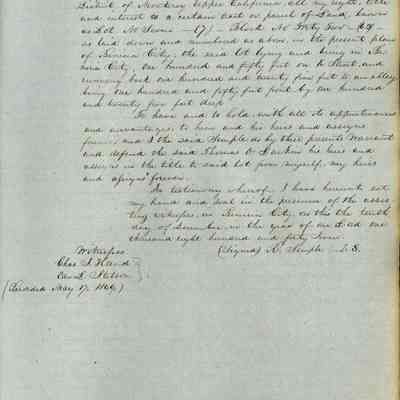 District of Monterey Upper California all my right, title
and interest to a certain lot or parcel of Land, known
as Lot No Seven —(7)— Block No Forty
as laid down and numbered as above, in the present plan
of Benicia City, the said lot lying and being in Be-
nicia City, one hundred and fifty feet on K Street, and
running back one hundred and twenty five feet to an alley
being one hundred and fifty feet front by one hundred
and twenty five feet deep
To have and to hold, with all its appurtenances
and advantages, to him and his heirs and assigns
forever, and I the said Semple do by these presents Warrant
and defend the said Thomas O. Larkin his heirs and
assigns in the title to said lot from myself, my heirs
and assigns forever.
In testimony whereof I have hereunto set
my hand and seal in the presence of the attes-
ting witnesses, in Benicia City, on this the tenth
day of December in the year of our Lord one
thousand eight hundred and forty
(Signed) R. Semple L.S.
Witnesses
Chas. Hand
Stetson
(Recorded May 17,